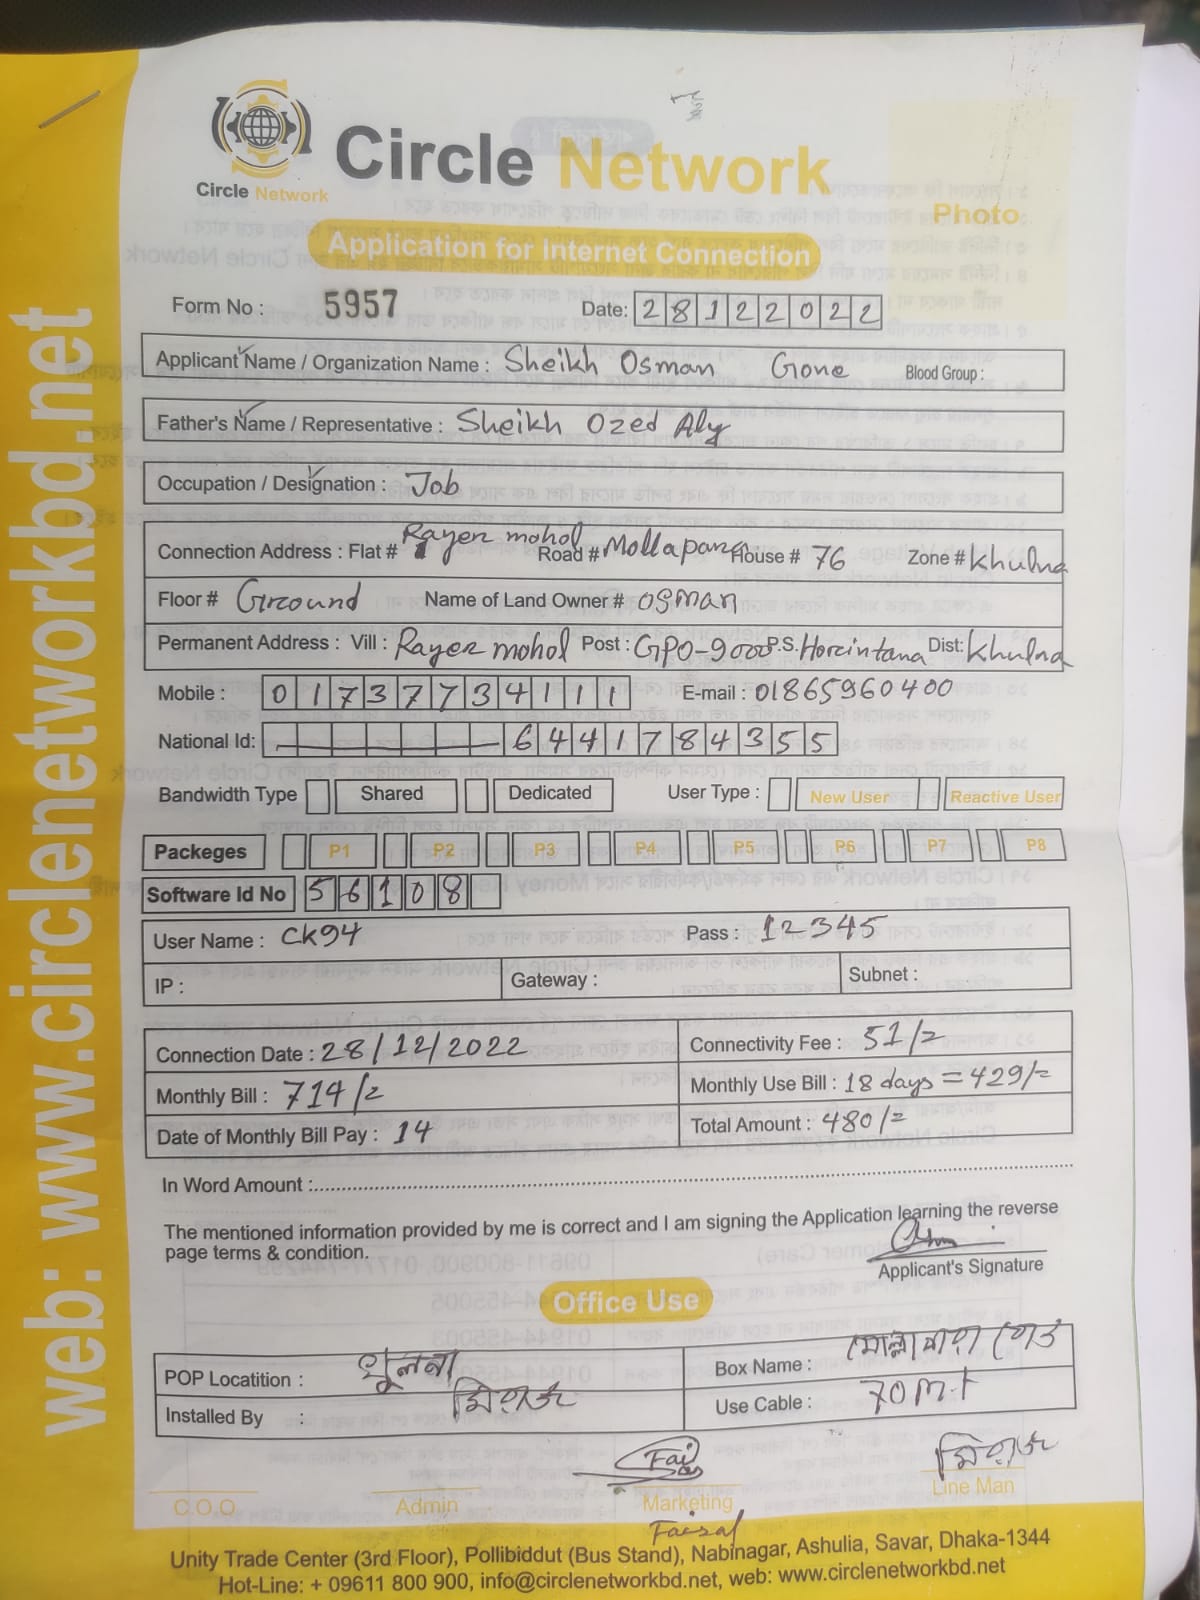 web: www.circlenetworkbd.net
Circle Network
Circle Network
Photo
Application for Internet Connection
Form No : 5957 Date: 28122022
Applicant Name / Organization Name : Sheikh Osman Gone Blood Group :
Father's Name / Representative : Sheikh Ozed Aly
Occupation / Designation : Job
Connection Address : Flat # Rayer mohol Road # Mollapara House # 76 Zone # Khulna
Floor # Ground Name of Land Owner # osman
Permanent Address : Vill : Rayer mohol Post : GPO-9000 P.S. Horcintana Dist: Khulna
Mobile : 01737734111 E-mail : 01865960400
National Id: 6441784355
Bandwidth Type Shared Dedicated User Type : New User Reactive User
Packeges P1 P2 P3 P4 P5 P6 P7 P8
Software Id No 56108
User Name : Ck94 Pass : 12345
IP : Gateway : Subnet :
Connection Date : 28/12/2022 Connectivity Fee : 51/=
Monthly Bill : 714/= Monthly Use Bill : 18 days = 429/=
Date of Monthly Bill Pay : 14 Total Amount : 480/=
In Word Amount :
The mentioned information provided by me is correct and I am signing the Application learning the reverse
page terms & condition.
Applicant's Signature
Office Use
POP Locatition : খুলনা Box Name : মোল্লাপাড়া
Installed By : মিরাজ Use Cable : 70 m.t
Fai মিরাজ
C.O.O Admin Marketing Line Man
Faisal
Unity Trade Center (3rd Floor), Pollibiddut (Bus Stand), Nabinagar, Ashulia, Savar, Dhaka-1344
Hot-Line: + 09611 800 900, info@circlenetworkbd.net, web: www.circlenetworkbd.net